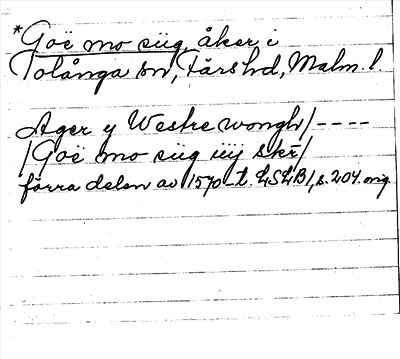 *Goë mo siig, åker i
Tolånga sn, Färs hd, Malm. l.
Ager y Westre wongh/----
/Goë mo siig iiij skr/
förra delen av 1570-t. LSLB1, s. 204. orig.